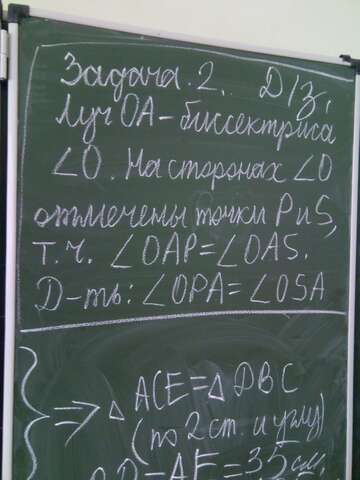 Задача 2. Д/з.
Луч OA - биссектриса
∠O. На сторонах ∠O
отмечены точки P и S,
т.ч. ∠OAP = ∠OAS.
Д-ть: ∠OPA = ∠OSA
} => △ ACE = △ DBC
(по 2 ст. и углу)
- AE = 35 см,